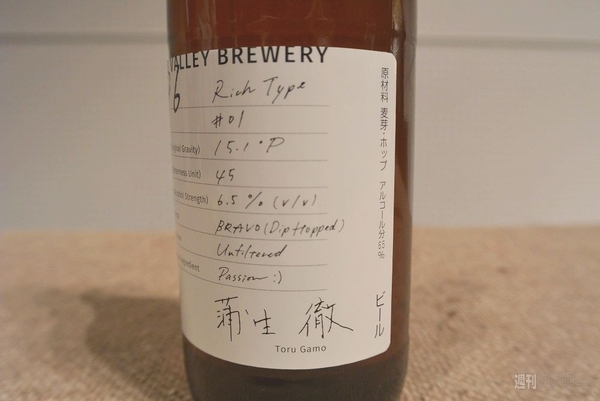 VALLEY BREWERY
6
Rich Type
#01
Gravity) 15.1°P
Unit) 45
Strength) 6.5% (v/v)
BRAVO (Dip Hopped)
Unfiltered
Passion :)
蒲生 徹
Toru Gamo
原材料 麦芽・ホップ アルコール分6.5%
ビール
週刊